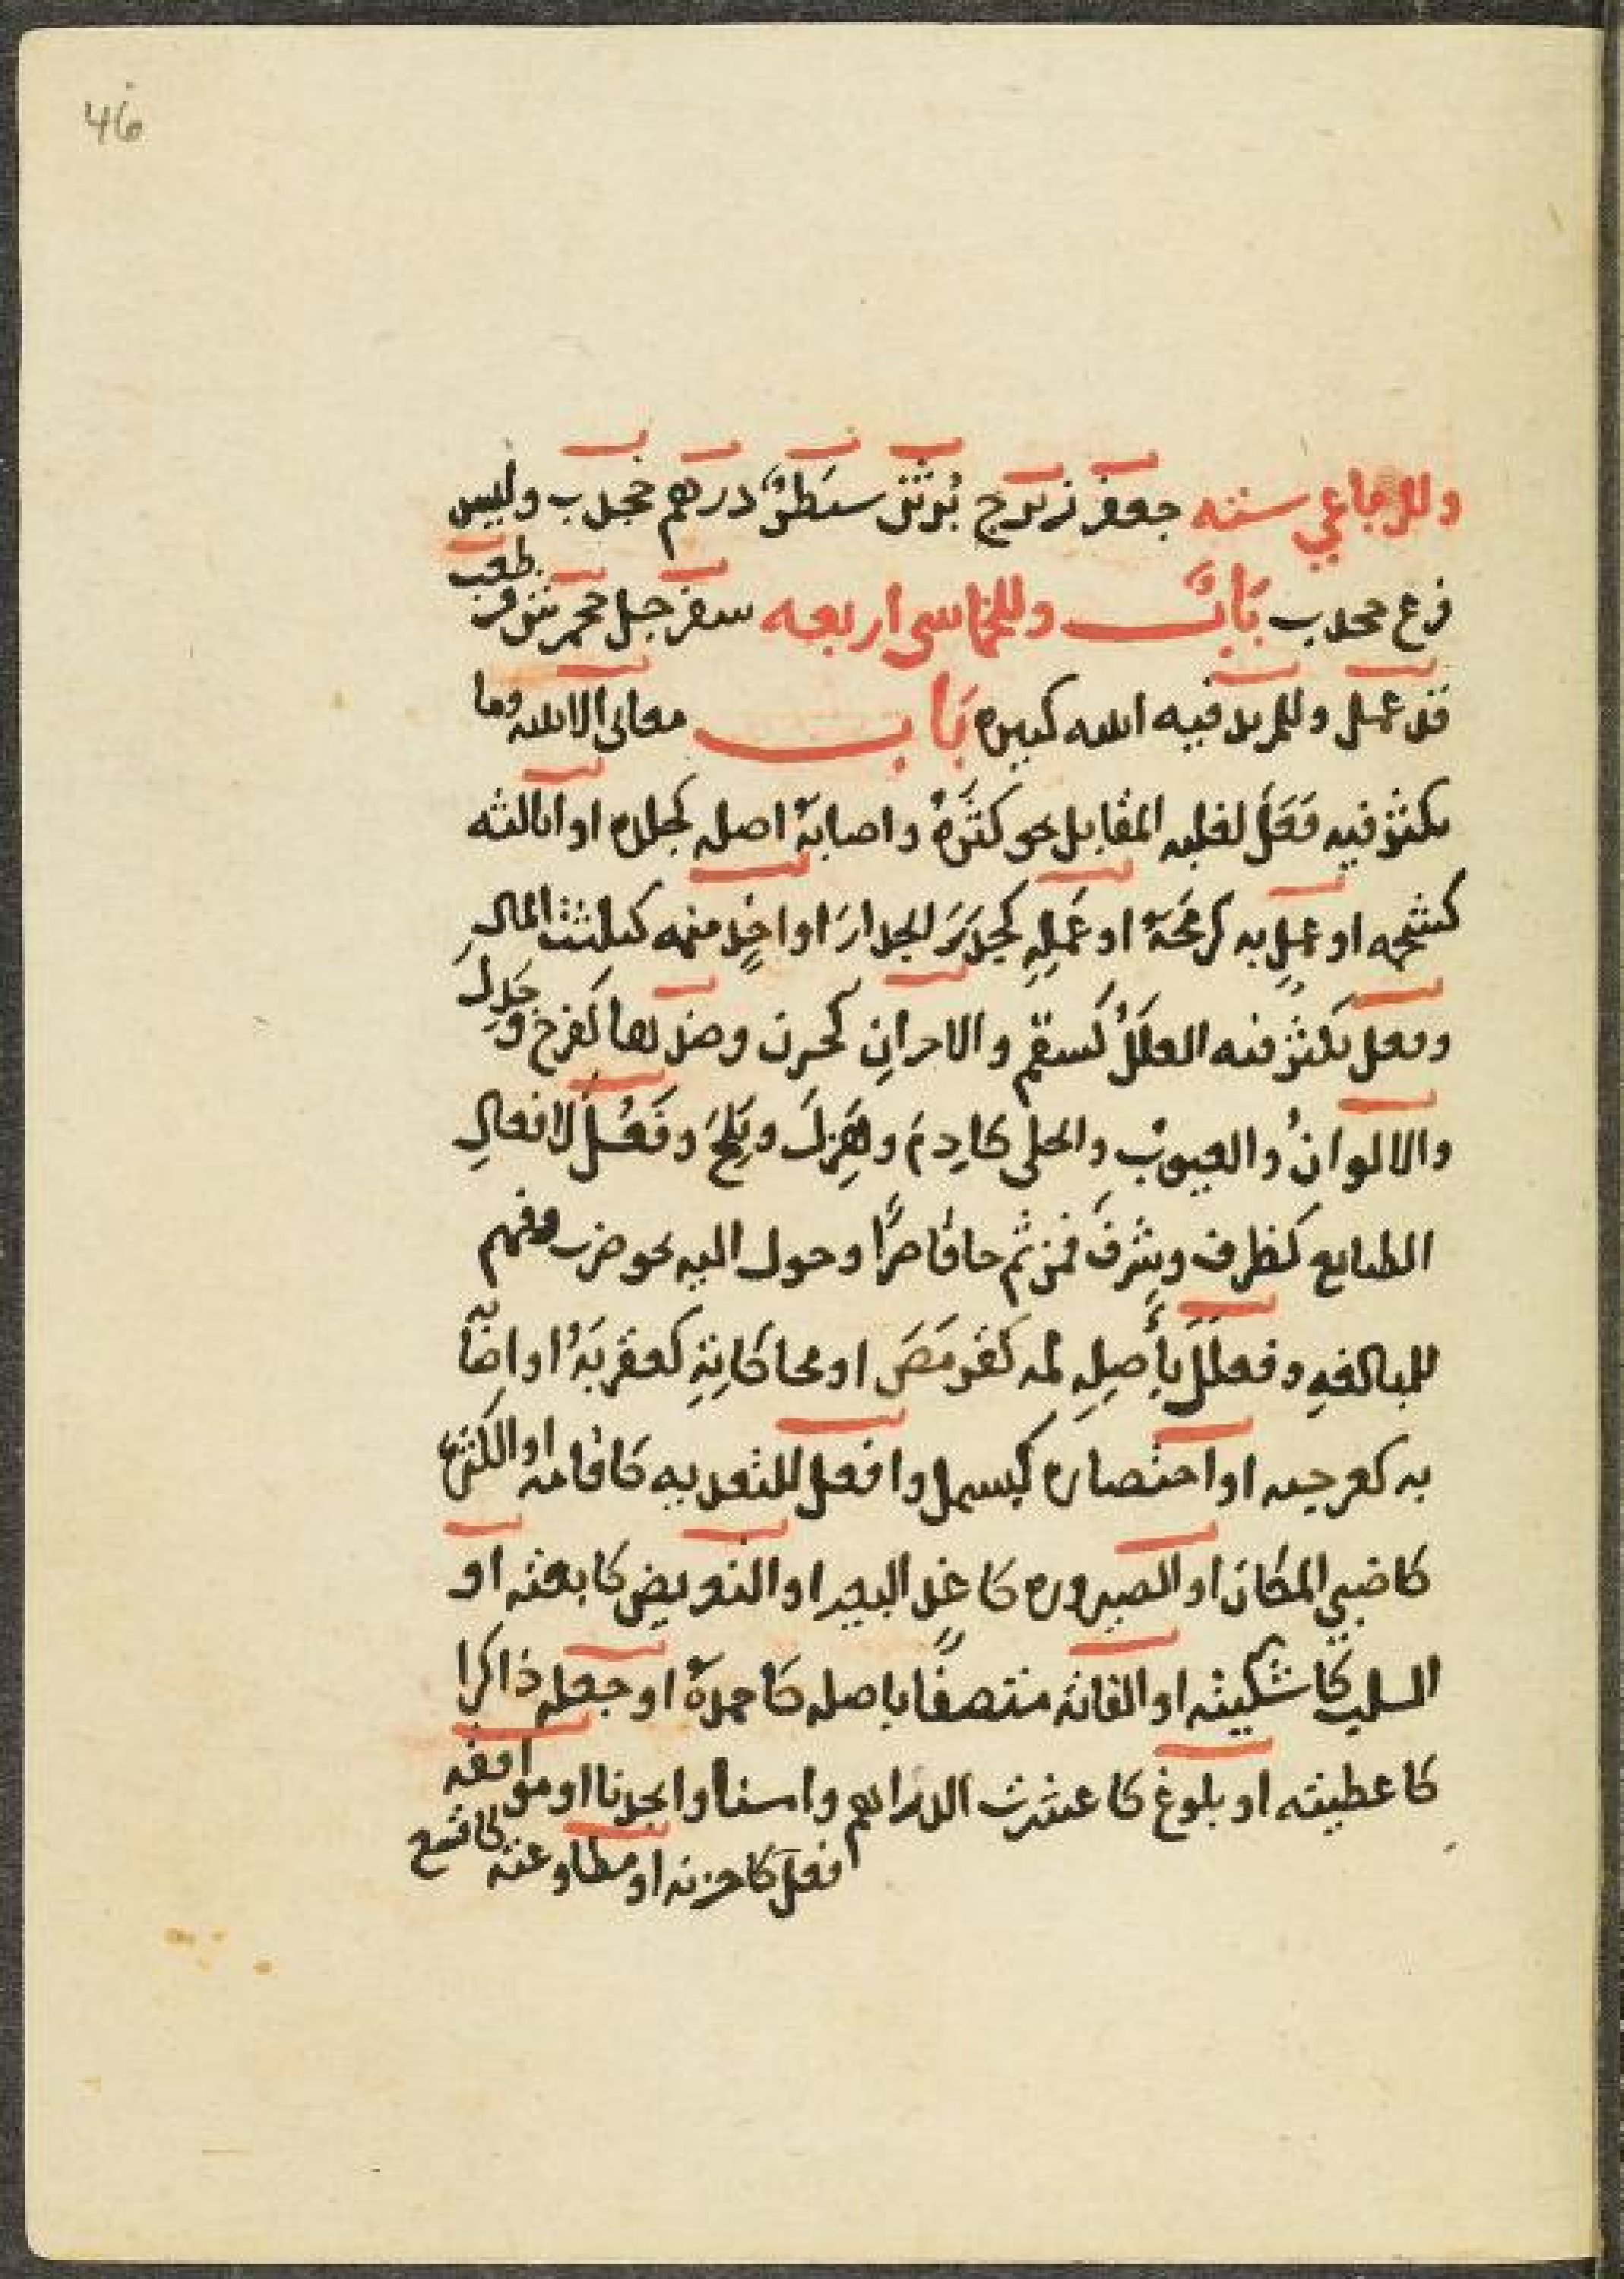 46
وللرباعي سته جعفر زبرج برثن سبطر درهم جخدب وليس
فرع جخدب باب وللخماسي اربعه سفرجل جحمرش قرطعب
قذعمل وللمزيد فيه ابنيه كثيره باب معاني الابنيه وما
يكثر فيه فَعَلَ لغلبه المقابل نحو كثَرَهُ واصابة اصله كجلده او انالته
كشحمه او عملٍ به كرمحَهُ او عَمَلِهِ كجدَرَ الجدارَ او اخذٍ منه كثلثت المال
وفعل يكثر فيه العلَلُ كسقم والاحزان كحزن وضدها كفرح وجذل
والالوانُ والعيوبُ والحلى كادِمَ و وبَلِجَ وفَعُلَ لافعالِ
الطبايع كظرف وشرف فمن ثم جا قاصرًا وحول اليه نحو ضرب وفهم
للمبالغه وفعلَلَ اصله له كقرمَصَ او محاكاتِهِ كعقربَهُ او اصابة
به كعرجنه او اختصاره كبسمل وافعل للتعديه كاقامه او الكثرة
كاضبي المكان او الصيروره كاغد البعير او التعريض كابعته او
السلب كاشكيته او الفائه متصفًا باصله كاحمدهُ او جعله ذا كذا
كاعطيته او بلوغ كاعشرت الدراهم وامسنا وانجدنا او موافقه
فعل كاحزنه او مطاوعته كاقشع